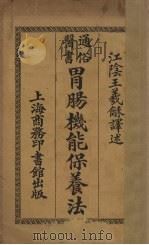 江陰王羲龢譯述
通俗
醫書
胃腸機能保養法
上海商務印書館出版